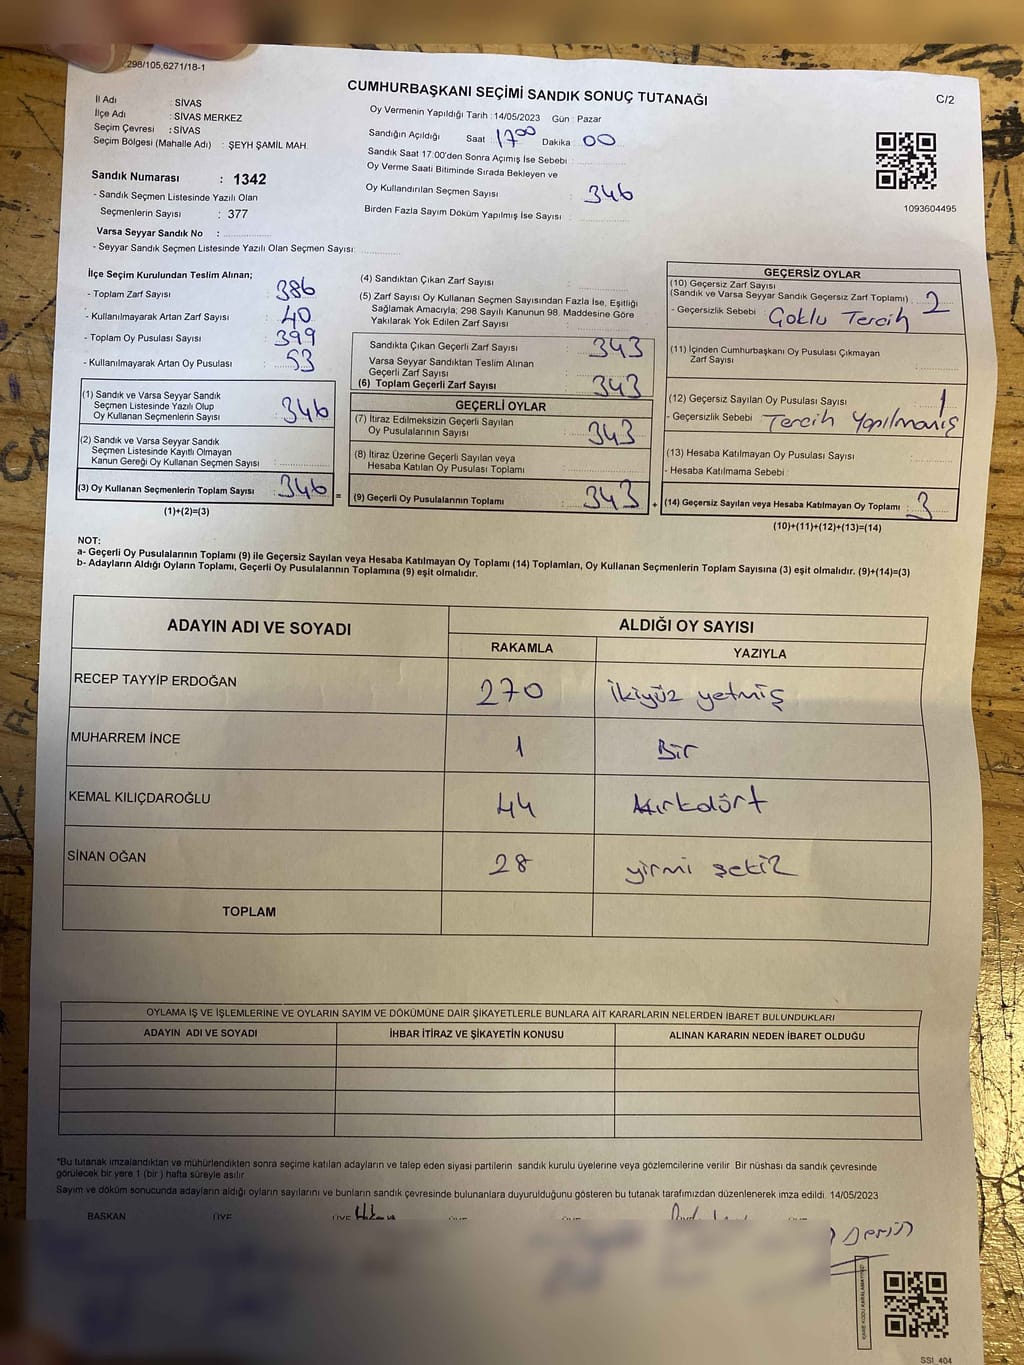 298/105,6271/18-1
CUMHURBAŞKANI SEÇİMİ SANDIK SONUÇ TUTANAĞI
C/2
İl Adı : SİVAS
İlçe Adı : SİVAS MERKEZ
Seçim Çevresi : SİVAS
Seçim Bölgesi (Mahalle Adı) : ŞEYH ŞAMİL MAH.
Oy Vermenin Yapıldığı Tarih : 14/05/2023 Gün : Pazar
Sandığın Açıldığı Saat : 17⁰⁰ Dakika : 00
Sandık Saat 17:00'den Sonra Açımış İse Sebebi :
Oy Verme Saati Bitiminde Sırada Bekleyen ve
Oy Kullandırılan Seçmen Sayısı : 346
Birden Fazla Sayım Döküm Yapılmış İse Sayısı :
1093604495
Sandık Numarası : 1342
- Sandık Seçmen Listesinde Yazılı Olan
Seçmenlerin Sayısı : 377
Varsa Seyyar Sandık No :
- Seyyar Sandık Seçmen Listesinde Yazılı Olan Seçmen Sayısı:
İlçe Seçim Kurulundan Teslim Alınan;
- Toplam Zarf Sayısı : 386
- Kullanılmayarak Artan Zarf Sayısı : 40
- Toplam Oy Pusulası Sayısı : 399
- Kullanılmayarak Artan Oy Pusulası : 53
(1) Sandık ve Varsa Seyyar Sandık
Seçmen Listesinde Yazılı Olup
Oy Kullanan Seçmenlerin Sayısı : 346
(2) Sandık ve Varsa Seyyar Sandık
Seçmen Listesinde Kayıtlı Olmayan
Kanun Gereği Oy Kullanan Seçmen Sayısı :
(3) Oy Kullanan Seçmenlerin Toplam Sayısı : 346 =
(1)+(2)=(3)
(4) Sandıktan Çıkan Zarf Sayısı :
(5) Zarf Sayısı Oy Kullanan Seçmen Sayısından Fazla İse, Eşitliği
Sağlamak Amacıyla; 298 Sayılı Kanunun 98. Maddesine Göre
Yakılarak Yok Edilen Zarf Sayısı :
Sandıkta Çıkan Geçerli Zarf Sayısı : 343
Varsa Seyyar Sandıktan Teslim Alınan
Geçerli Zarf Sayısı :
(6) Toplam Geçerli Zarf Sayısı : 343
GEÇERLİ OYLAR
(7) İtiraz Edilmeksizin Geçerli Sayılan
Oy Pusulalarının Sayısı : 343
(8) İtiraz Üzerine Geçerli Sayılan veya
Hesaba Katılan Oy Pusulası Toplamı :
(9) Geçerli Oy Pusulalarının Toplamı : 343 +
GEÇERSİZ OYLAR
(10) Geçersiz Zarf Sayısı
(Sandık ve Varsa Seyyar Sandık Geçersiz Zarf Toplamı) : 2
- Geçersizlik Sebebi : Çoklu Tercih
(11) İçinden Cumhurbaşkanı Oy Pusulası Çıkmayan
Zarf Sayısı :
(12) Geçersiz Sayılan Oy Pusulası Sayısı : 1
- Geçersizlik Sebebi : Tercih Yapılmamış
(13) Hesaba Katılmayan Oy Pusulası Sayısı :
- Hesaba Katılmama Sebebi :
(14) Geçersiz Sayılan veya Hesaba Katılmayan Oy Toplamı : 3
(10)+(11)+(12)+(13)=(14)
NOT:
a- Geçerli Oy Pusulalarının Toplamı (9) ile Geçersiz Sayılan veya Hesaba Katılmayan Oy Toplamı (14) Toplamları, Oy Kullanan Seçmenlerin Toplam Sayısına (3) eşit olmalıdır. (9)+(14)=(3)
b- Adayların Aldığı Oyların Toplamı, Geçerli Oy Pusulalarının Toplamına (9) eşit olmalıdır.
ADAYIN ADI VE SOYADI ALDIĞI OY SAYISI
RAKAMLA YAZIYLA
RECEP TAYYİP ERDOĞAN 270 İkiyüz yetmiş
MUHARREM İNCE 1 Bir
KEMAL KILIÇDAROĞLU 44 Kırkdört
SİNAN OĞAN 28 yirmi şekiz
TOPLAM
OYLAMA İŞ VE İŞLEMLERİNE VE OYLARIN SAYIM VE DÖKÜMÜNE DAİR ŞİKAYETLERLE BUNLARA AİT KARARLARIN NELERDEN İBARET BULUNDUKLARI
ADAYIN ADI VE SOYADI İHBAR İTİRAZ VE ŞİKAYETİN KONUSU ALINAN KARARIN NEDEN İBARET OLDUĞU
*Bu tutanak imzalandıktan ve mühürlendikten sonra seçime katılan adayların ve talep eden siyasi partilerin sandık kurulu üyelerine veya gözlemcilerine verilir Bir nüshası da sandık çevresinde
görülecek bir yere 1 (bir ) hafta süreyle asılır
Sayım ve döküm sonucunda adayların aldığı oyların sayılarını ve bunların sandık çevresinde bulunanlara duyurulduğunu gösteren bu tutanak tarafımızdan düzenlenerek imza edildi. 14/05/2023
BAŞKAN ÜYE ÜYE
SSI_404